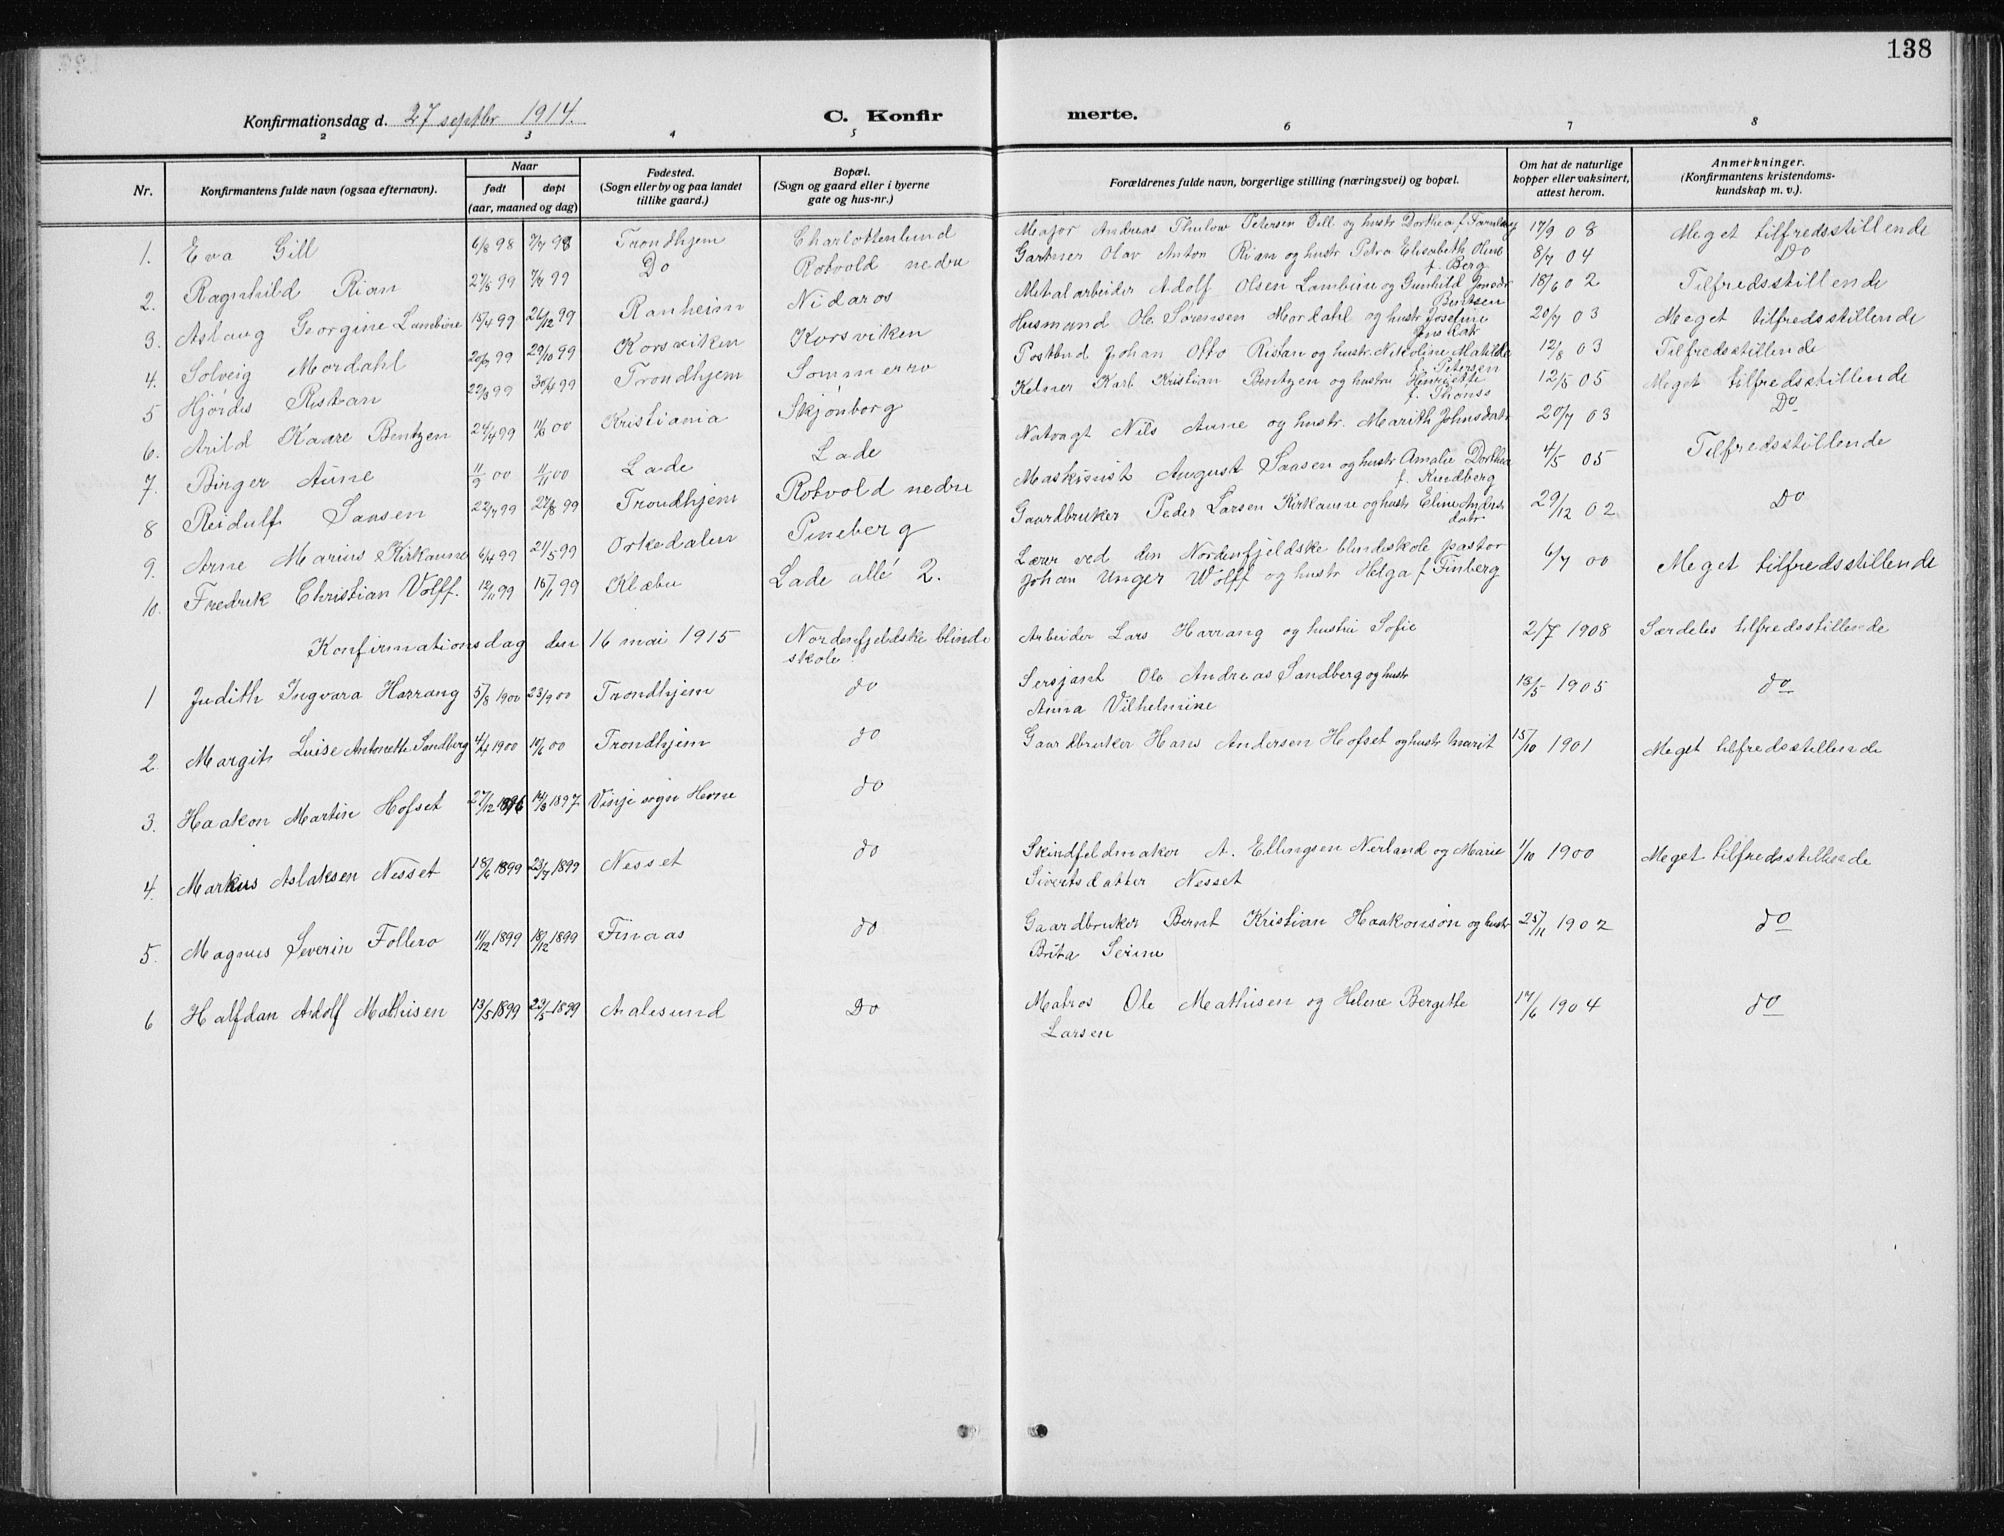 138
Konfirmationsdag d. 27 septbr 1914.
C. Konfir merte.
2 3 4 5 6 7 8
Nr.
Konfirmantens fulde navn (ogsaa efternavn).
Naar
født døpt
(aar, maaned og dag)
Fødested.
(Sogn eller by og paa landet
tillike gaard.)
Bopæl.
(Sogn og gaard eller i byerne
gate og hus-nr.)
Forældrenes fulde navn, borgerlige stilling (næringsvei) og bopæl.
Om hat de naturlige
kopper eller vaksinert,
attest herom.
Anmerkninger.
(Konfirmantens kristendoms-
kundskap m. v.).
1. Eva Gill 6/8 98 Trondhjem Charlottenlund Major Andreas Thulow Petersen Gill og hustr Dorthea f. 17/9 08 Meget tilfredsstillende
2. Ragnhild Rian 27/5 99 7/7 99 Do Rotvold nedre Gartner Olav Anton Rian og hustr Petra Elisabeth Oline
f. Berg 8/7 04 Do
3. Aslaug Georgine 15/4 99 26/12 99 Ranheim Nidaros Metalarbeider Adolf Olsen og Gunhild Jonsdr
Bentsen 18/6 02 Tilfredsstillende
4. Solveig Mordahl 20/9 99 29/10 99 Korsviken Korsviken Husmand Ole Sørensen Mordahl og hustr Josefine
20/7 03 Meget tilfredsstillende
5 Hjørdis Ristan 22/3 99 30/4 99 Trondhjem Sommerro Postbud Johan Otto Ristan og hustr. Nikoline Matilde
f. Petersen 12/8 03 Tilfredsstillende
6. Arild Kaare Bentzen 24/4 99 11/6 00 Kristiania Skjønborg Kelner Karl Kristian Bentzen og hustru Henriette
12/5 05 Meget tilfredsstillende
7. Birger Aune 11/9 00 11/11 00 Lade Lade Natvagt Nils Aune og hustr. Marith Johnsdatr 20/7 03 Do
8 Reidulf Saasen 22/7 99 27/8 99 Trondhjem Rotvold nedre Maskinist August Saasen og hustr Amalie Dorthea
f. Rindberg 4/5 05 Tilfredsstillende
9. Arne Marius Kirkaune 6/4 99 21/5 99 Orkedalen Pineberg Gaardbruker Peder Larsen Kirkaune og hustr Eline Anders
datr 29/12 02 Do
10. Fredrik Christian Wolff. 12/11 99 Klæbu Lade allé 2. Lærer ved den Nordenfjeldske blindeskole pastor
Johan Unger Wolff og hustr Helga f Finberg 6/7 00 Meget tilfredsstillende
Konfirmationsdag den 16 mai 1915
1 Judith Ingvara Harrang 5/8 1900 23/9 00 Trondhjem Nordenfjeldske blinde
skole. Arbeider Lars Harrang og hustru Sofie 2/7 1908 Særdeles tilfredsstillende
2. Margith Luise Antonette Sandberg 4/4 1900 10/6 00 Trondhjem do Sersjant Ole Andreas Sandberg og hustr
Anna Vilhelmine 18/5 1905 do
3. Haakon Martin Hofset 27/12 1896 14/3 1897 Vinje sogn Hevne do Gaardbruker Hans Andersen Hofset og hustr Marit 15/10 1901 Meget tilfredsstillende
do
4. Markus Aslaksen Nesset 18/6 1899 23/7 1899 Nesset do Skindfeldmaker A. Ellingsen Nerland og Marie
Sivertsdatter Nesset 1/10 1900 Meget tilfredsstillende
5. Magnus Severin Follerø 11/12 1899 18/12 1899 Finaas do Gaardbruker Bernt Kristian Haakonson og hustr
Brita Serine 25/11 1902 do
6 Halfdan Adolf Mathisen 13/5 1899 23/5 1899 Aalesund Do Matros Ole Mathisen og Helene Bergitte
Larsen 17/6 1904 do